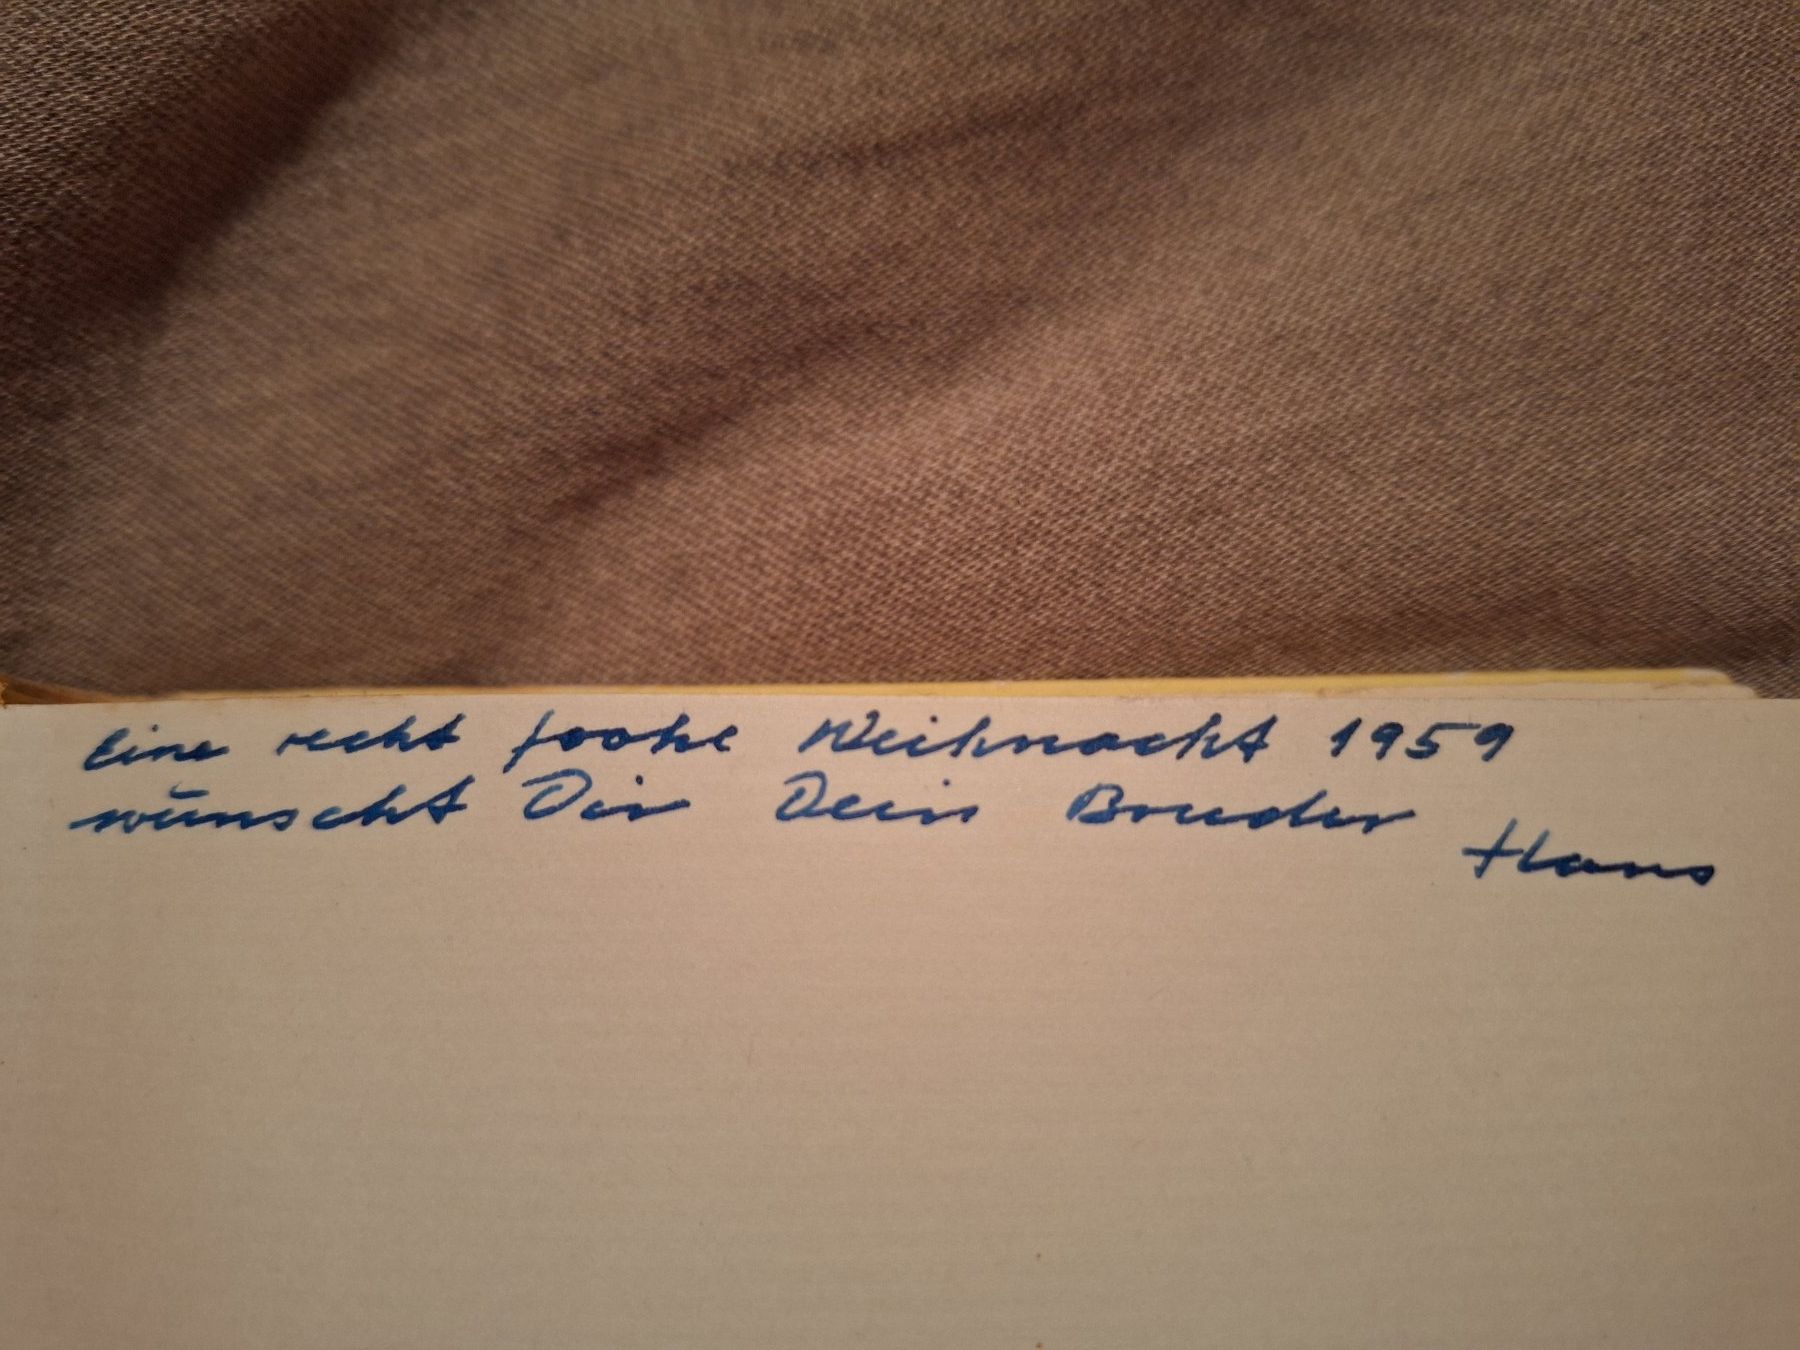 Eine recht frohe Weihnacht 1959
wünscht Dir Dein Bruder
Hans